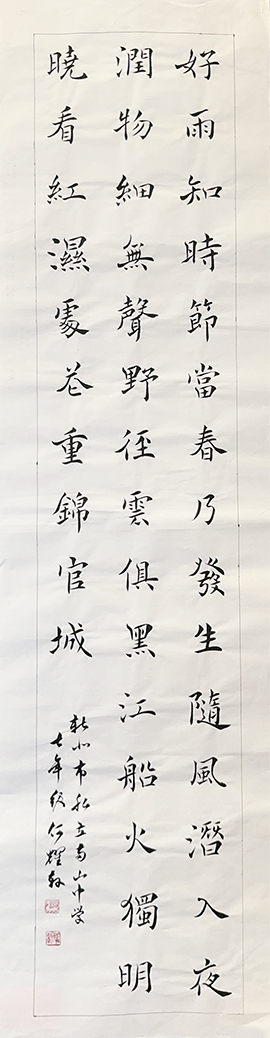 好雨知時節當春乃發生隨風潛入夜
潤物細無聲野徑雲俱黑江船火獨明
曉看紅濕處花重錦官城
新北市私立南山中学
七年級何耀